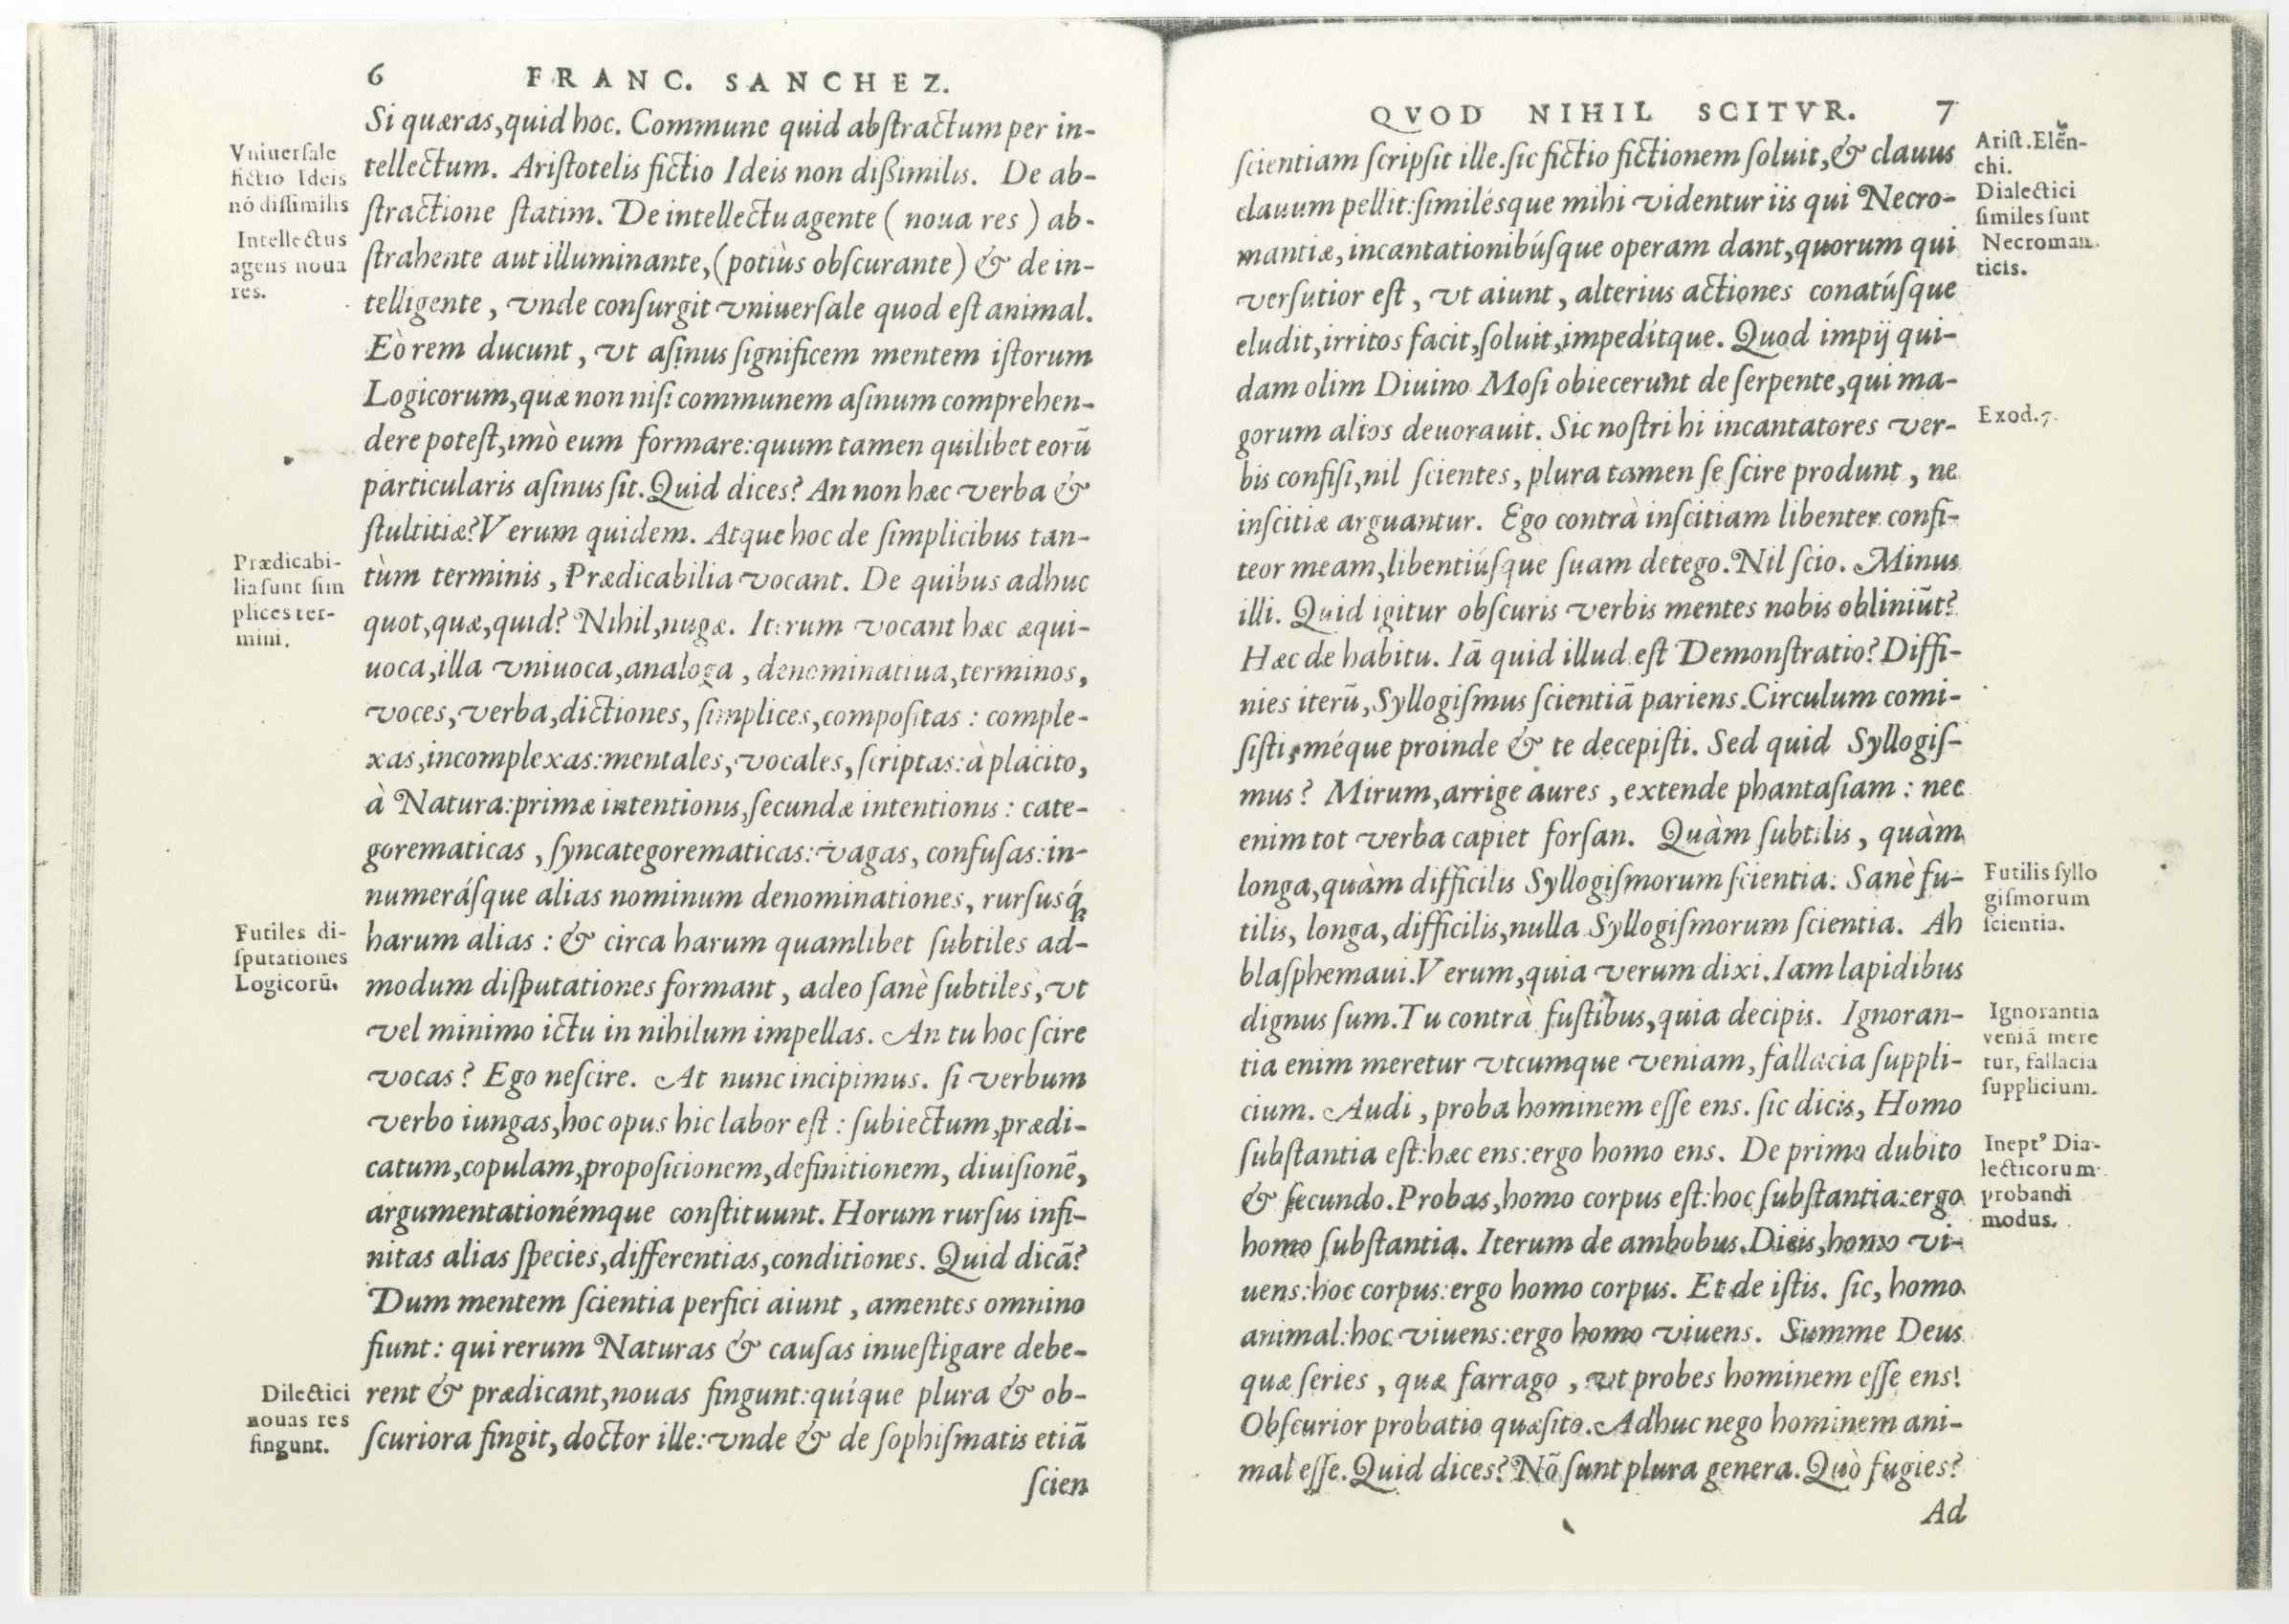 6 FRANC. SANCHEZ.
Si quæras, quid hoc. Commune quid abſtractum per in-
tellectum. Ariſtotelis fictio Ideis non dißimilis. De ab-
ſtractione ſtatim. De intellectu agente ( noua res ) ab-
ſtrahente aut illuminante, (potiùs obſcurante) & de in-
telligente, vnde conſurgit vniuerſale quod eſt animal.
Eò rem ducunt, vt aſinus ſignificem mentem iſtorum
Logicorum, quæ non niſi communem aſinum comprehen-
dere poteſt, imò eum formare: quum tamen quilibet eorū
particularis aſinus ſit. Quid dices? An non hæc verba &
ſtultitiæ? Verum quidem. Atque hoc de ſimplicibus tan-
tùm terminis, Prædicabilia vocant. De quibus adhuc
quot, quæ, quid? Nihil, nugæ. Iterum vocant hæc æqui-
uoca, illa vniuoca, analoga, denominatiua, terminos,
voces, verba, dictiones, ſimplices, compoſitas: comple-
xas, incomplexas: mentales, vocales, ſcriptas: à placito,
à Natura: primæ intentionis, ſecundæ intentionis: cate-
gorematicas, ſyncategorematicas: vagas, confuſas: in-
numeráſque alias nominum denominationes, rurſusq́;
harum alias: & circa harum quamlibet ſubtiles ad-
modum diſputationes formant, adeo ſanè ſubtiles, vt
vel minimo ictu in nihilum impellas. An tu hoc ſcire
vocas? Ego neſcire. At nunc incipimus. ſi verbum
verbo iungas, hoc opus hic labor eſt: ſubiectum, prædi-
catum, copulam, propoſicionem, definitionem, diuiſionē,
argumentationémque conſtituunt. Horum rurſus infi-
nitas alias ſpecies, differentias, conditiones. Quid dicā?
Dum mentem ſcientia perfici aiunt, amentes omnino
fiunt: qui rerum Naturas & cauſas inueſtigare debe-
rent & prædicant, nouas fingunt: quíque plura & ob-
ſcuriora fingit, doctor ille: vnde & de ſophiſmatis etiā
ſcien
Vniuerſale
fictio Ideis
nō diſſimilis
Intellectus
agens noua
res.
Prædicabi-
lia ſunt ſim
plices ter-
mini.
Futiles di-
ſputationes
Logicorū.
Dilectici
nouas res
fingunt.
QVOD NIHIL SCITVR. 7
ſcientiam ſcripſit ille. ſic fictio fictionem ſoluit, & clauus
clauum pellit: ſimiléſque mihi videntur iis qui Necro-
mantiæ, incantationibúſque operam dant, quorum qui
verſutior eſt, vt aiunt, alterius actiones conatúſque
eludit, irritos facit, ſoluit, impedítque. Quod impij qui-
dam olim Diuino Moſi obiecerunt de ſerpente, qui ma-
gorum alios deuorauit. Sic noſtri hi incantatores ver-
bis confiſi, nil ſcientes, plura tamen ſe ſcire produnt, ne
inſcitiæ arguantur. Ego contrà inſcitiam libenter confi-
teor meam, libentiúſque ſuam detego. Nil ſcio. Minus
illi. Quid igitur obſcuris verbis mentes nobis obliniūt?
Hæc de habitu. Iā quid illud eſt Demonſtratio? Diffi-
nies iterū, Syllogiſmus ſcientiā pariens. Circulum comi-
ſiſti, méque proinde & te decepiſti. Sed quid Syllogiſ-
mus? Mirum, arrige aures, extende phantaſiam: nec
enim tot verba capiet forſan. Quàm ſubtilis, quàm
longa, quàm difficilis Syllogiſmorum ſcientia. Sanè fu-
tilis, longa, difficilis, nulla Syllogiſmorum ſcientia. Ah
blaſphemaui. Verum, quia verum dixi. Iam lapidibus
dignus ſum. Tu contrà fuſtibus, quia decipis. Ignoran-
tia enim meretur vtcumque veniam, fallacia ſuppli-
cium. Audi, proba hominem eſſe ens. ſic dicis, Homo
ſubſtantia eſt: hæc ens: ergo homo ens. De primo dubito
& ſecundo. Probas, homo corpus eſt: hoc ſubſtantia: ergo
homo ſubſtantia. Iterum de ambobus. Dicis, homo vi-
uens: hoc corpus: ergo homo corpus. Et de iſtis. ſic, homo
animal: hoc viuens: ergo homo viuens. Summe Deus
quæ ſeries, quæ farrago, vt probes hominem eſſe ens!
Obſcurior probatio quæſito. Adhuc nego hominem ani-
mal eſſe. Quid dices? Nō ſunt plura genera. Quò fugies?
Ad
Ariſt. Elēn-
chi.
Dialectici
ſimiles ſunt
Necroman.
ticis.
Exod. 7.
Futilis ſyllo
giſmorum
ſcientia.
Ignorantia
veniā mere
tur, fallacia
ſupplicium.
Ineptꝰ Dia-
lecticorum
probandi
modus.